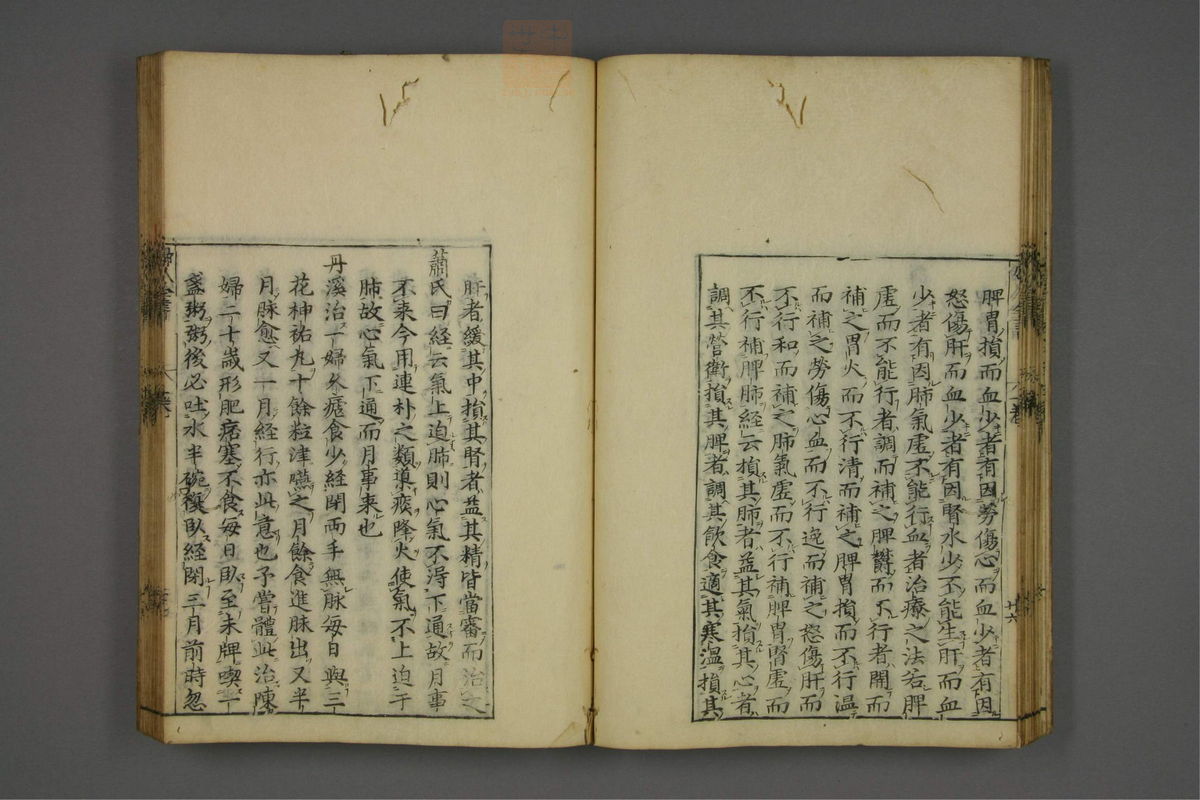 脾胃損而血少者有因勞傷心而血少者有因
怒傷肝而血少者有因腎水少不能生肝而血
少者有因肺氣虛不能行血者治療之法若脾
虛而不能行者調而補之脾欝而不行者開而
補之胃火而不行清而補之脾胃損而不行温
而補之勞傷心血而不行逸而補之怒傷肝而
不行和而補之肺氣虛而不行補脾胃腎虛而
不行補脾肺經云損其肺者益其氣損其心者
調其營衛損其脾者調其飲食適其寒温損其
廿六
肝者緩其中損其腎者益其精皆當審而治之
蕭氏曰經云氣上迫肺則心氣不得下通故月事
不来今用連朴之類導痰降火使氣不上迫于
肺故心氣下通而月事来也
丹溪治一婦久瘧食少經閉两手無脉每日與三
花神祐丸十餘粒津嚥之月餘食進脉出又半
月脉愈又一月經行亦此意也予嘗體此治陳
婦二十歲形肥痞塞不食每日臥至未牌喫一
盞粥粥後必吐水半碗復臥經閉三月前時忽